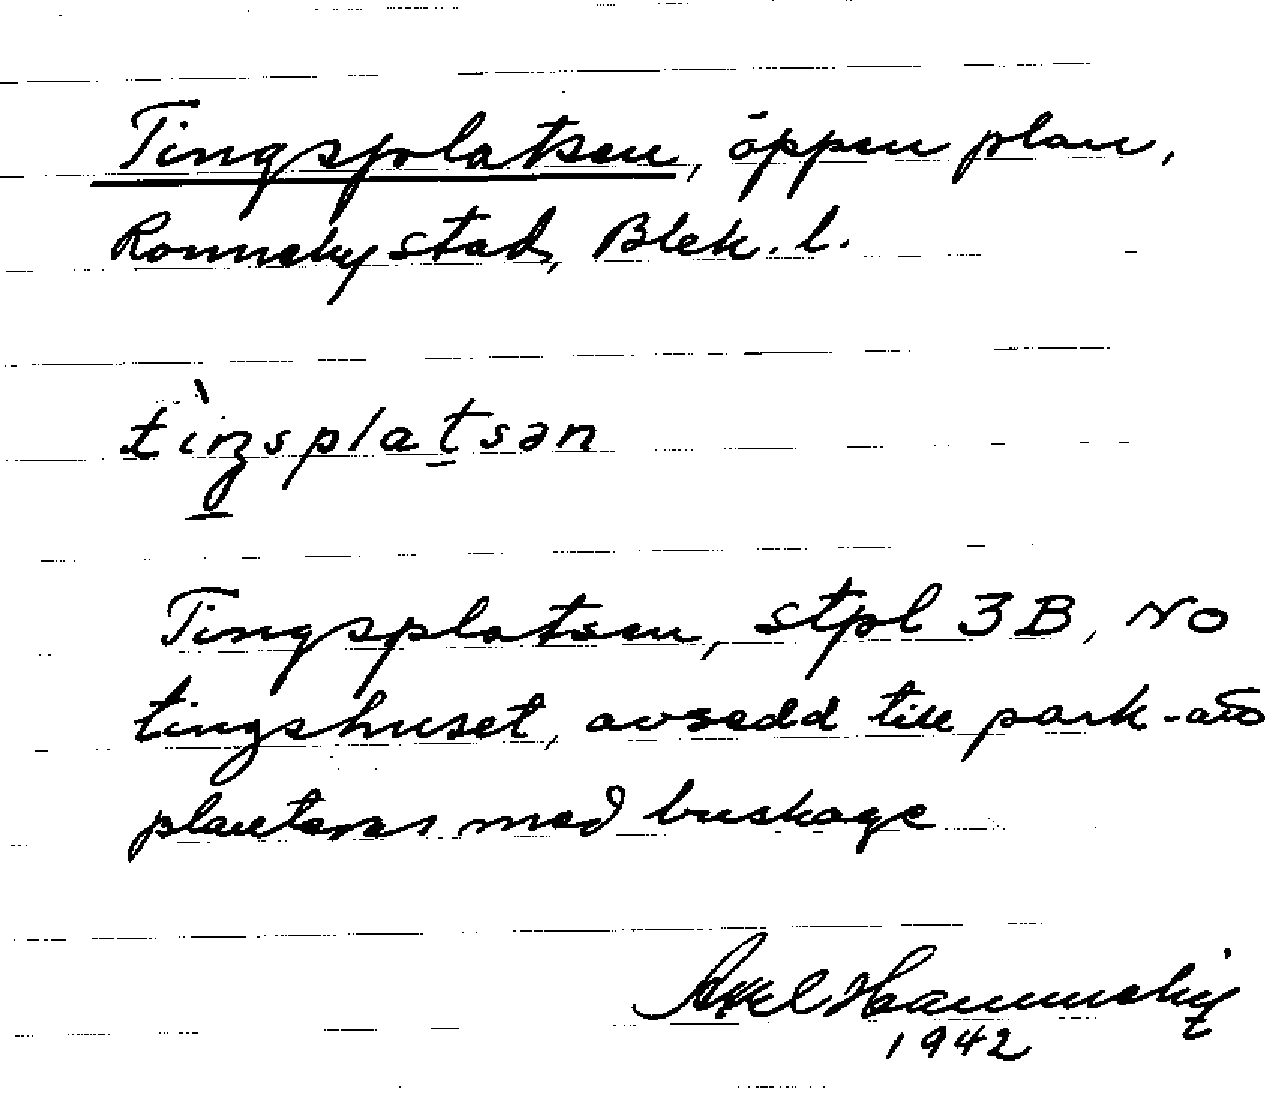 Tingsplatsen, öppen plan,
Ronneby stad, Blek. l.
tìŋsplat̠sən
Tingsplatsen, stpl 3B, NO
tingshuset, avsedd till park -
planteras med buskage
Axel
1942